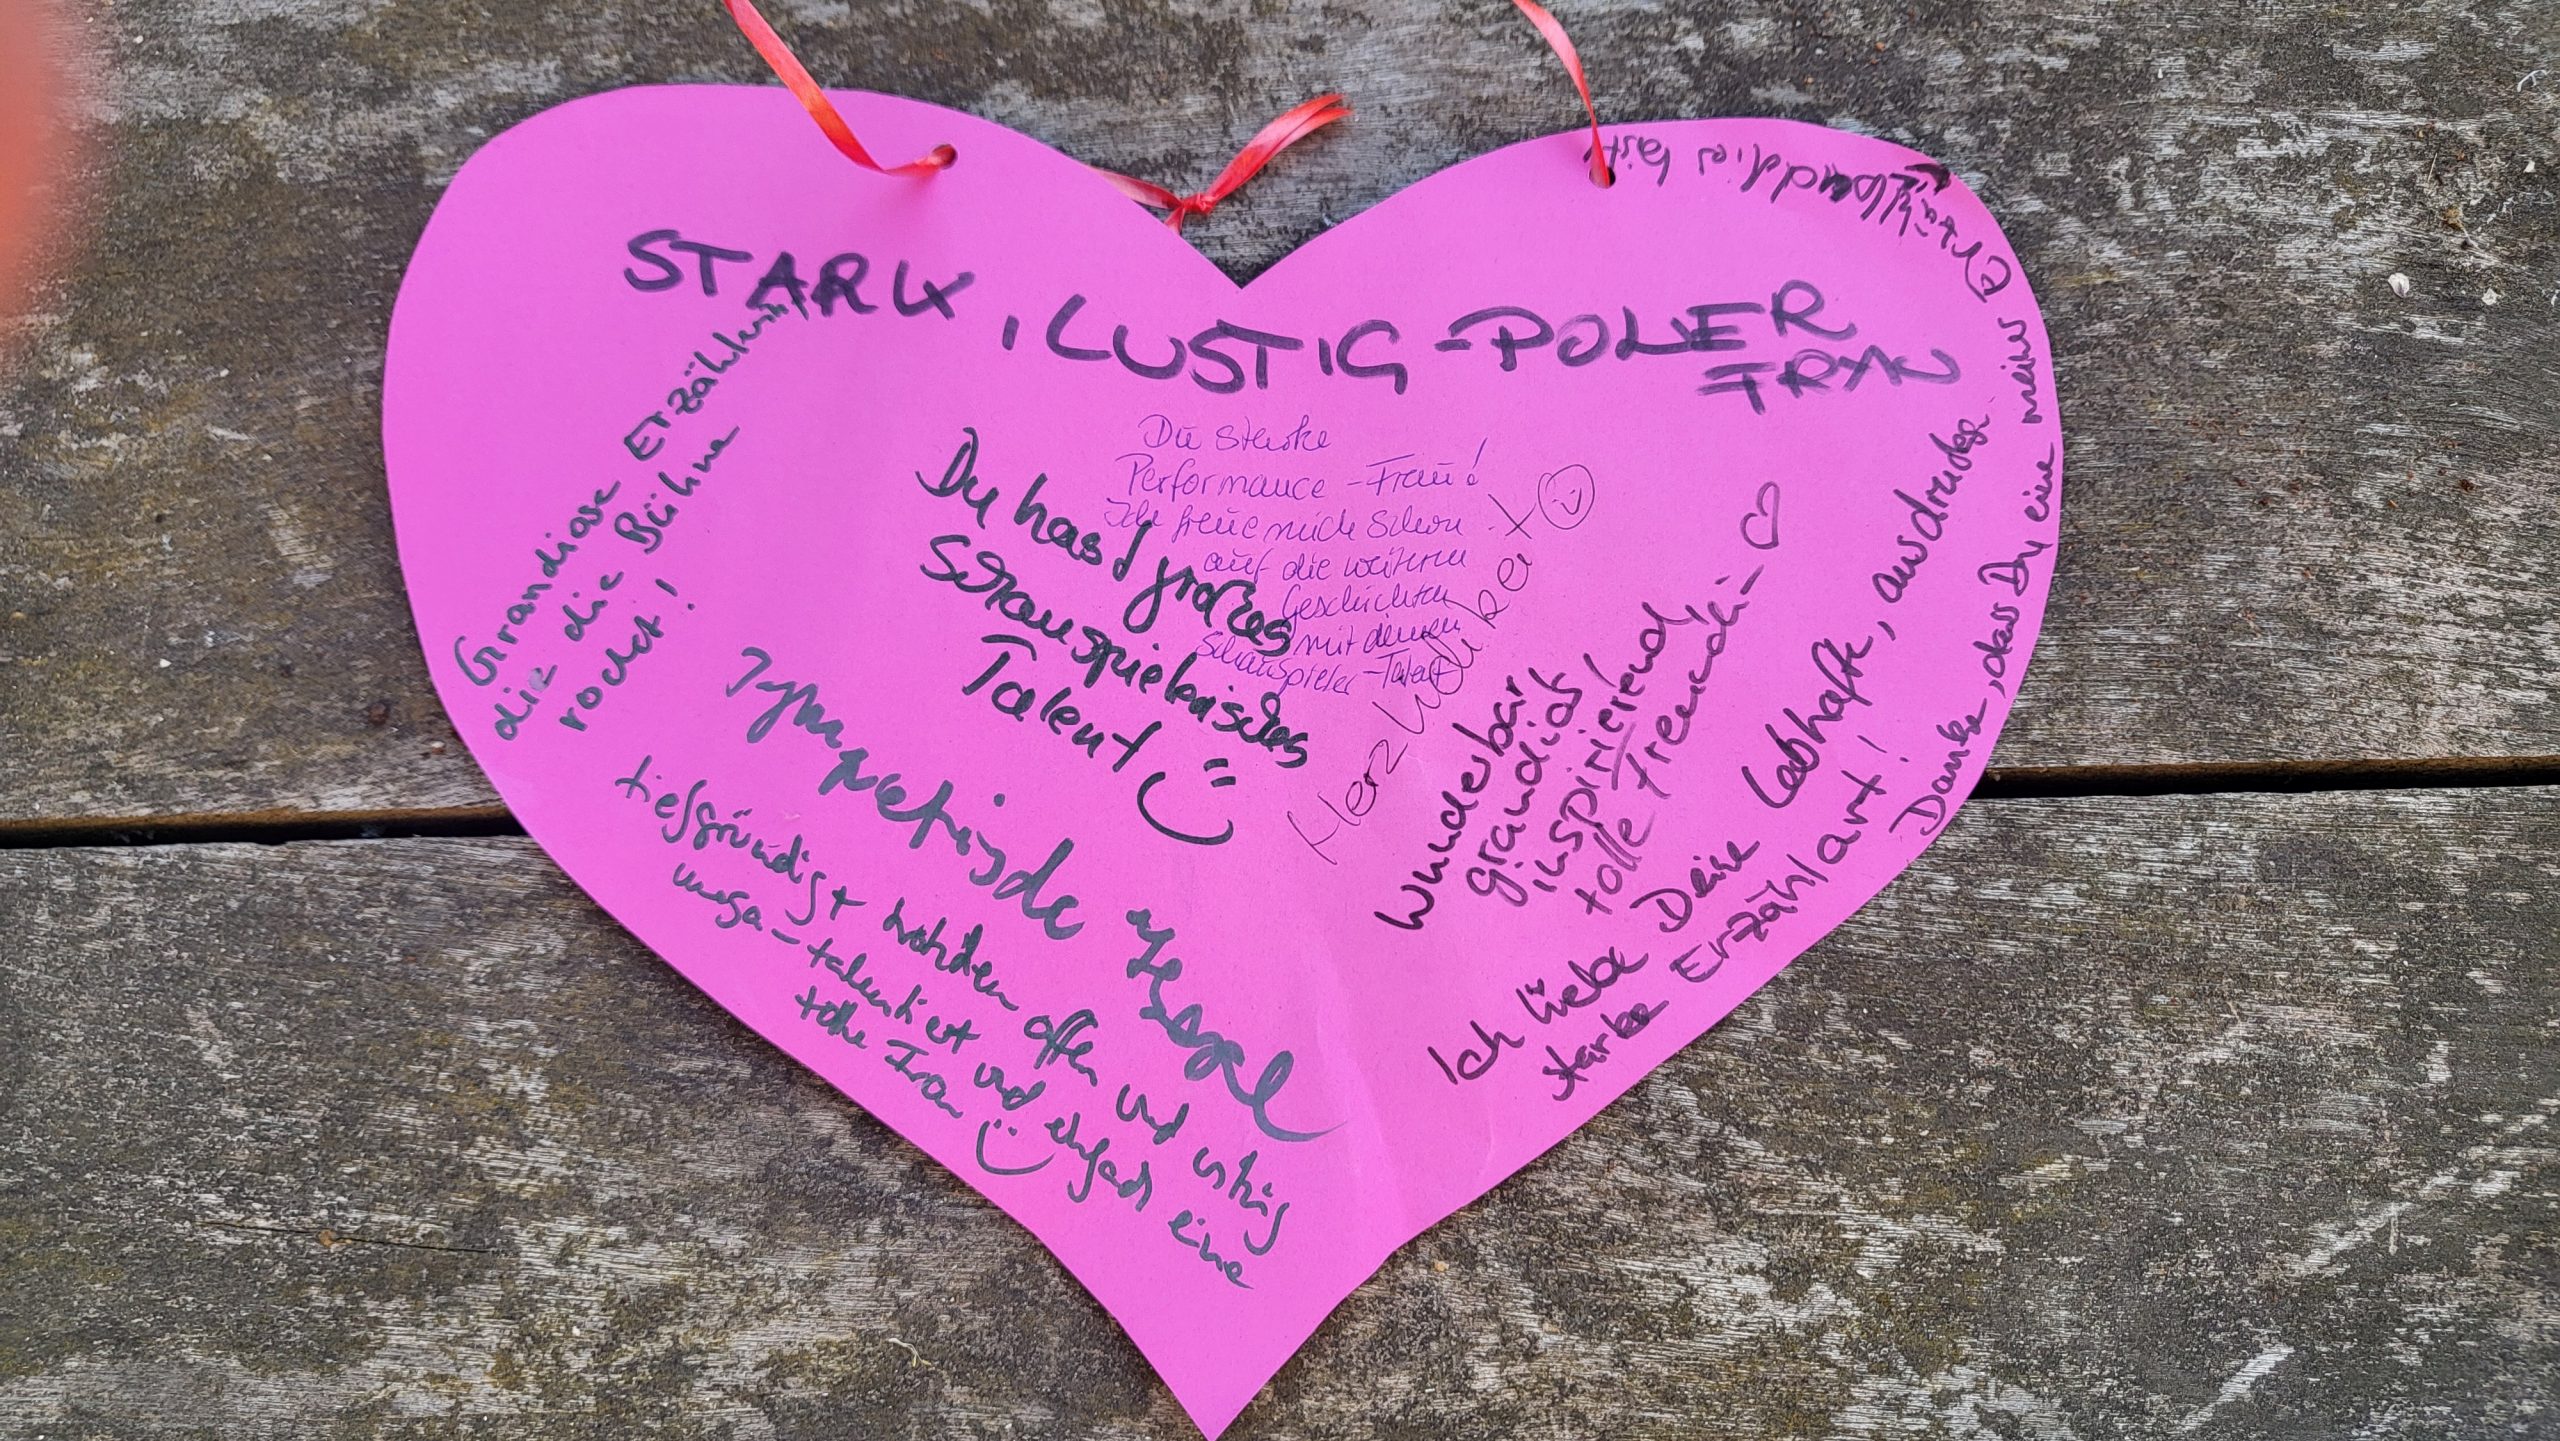 STARK, LUSTIG-POWER
FRAU
Grandiose Erzählerin,
die die Bühne
rockt!
Du starke
Performance-Frau!
Ich freue mich schon
auf die weiteren
Geschichten
mit deinem
Schauspieler-Talent
Du hast großes
Schauspielerisches
Talent
Herzlichkeit
wunderbar
grandios
inspirierend
tolle Freundin
Ich liebe Deine lebhafte, ausdrucks
starke Erzählart!
Danke, dass Du eine meiner
bist
Sympathische
tiefgründig offen und lustig
mega-talentiert und einfach eine
tolle Frau